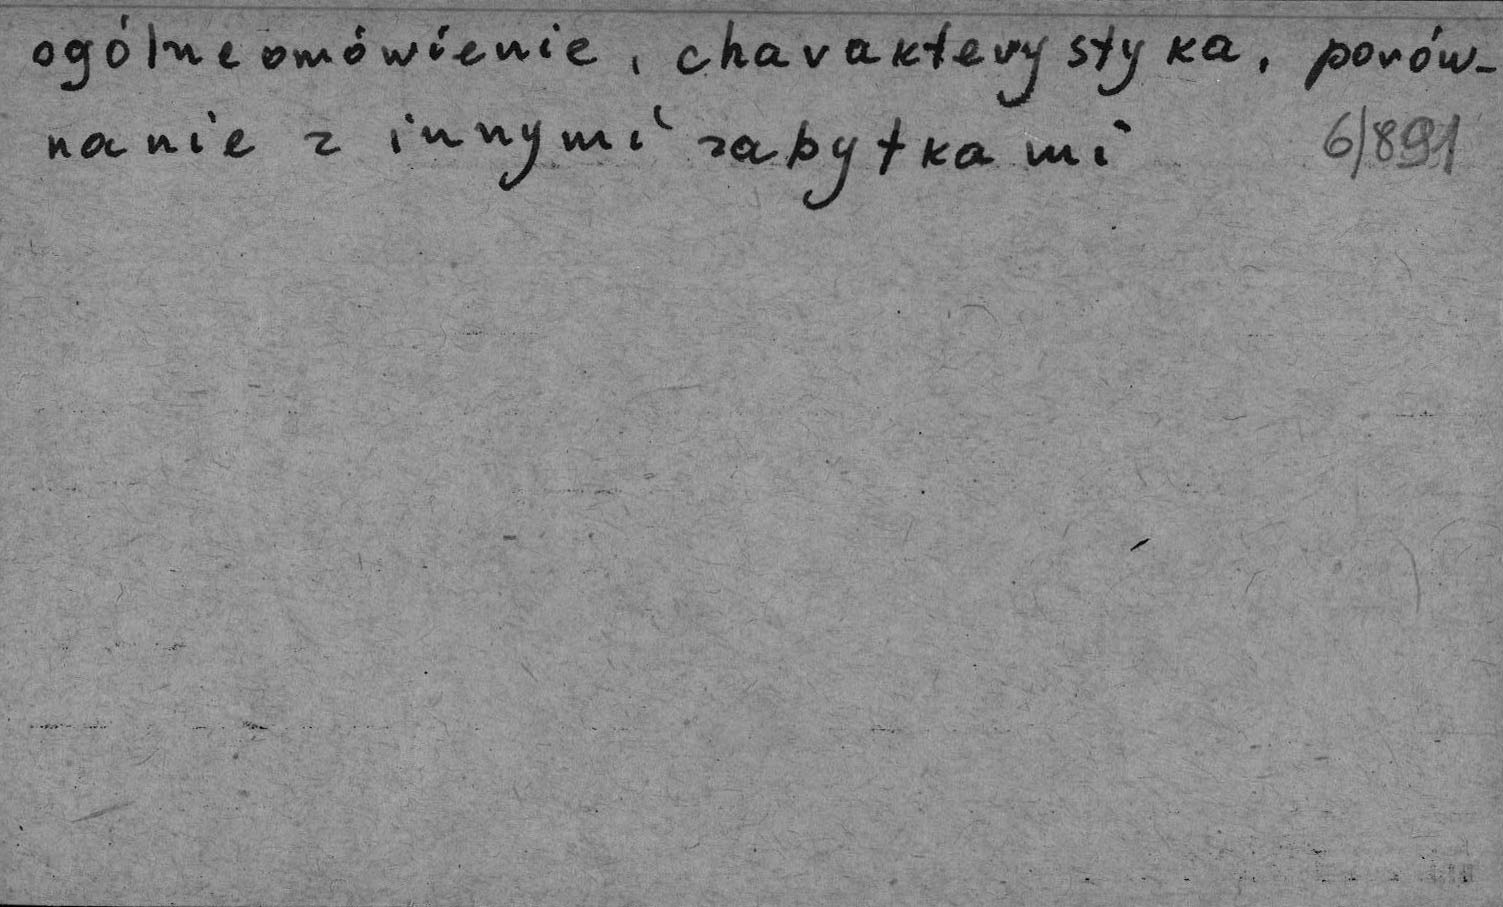 ogólne omówienie, charakterystyka, porów-
nanie z innymi zabytkami
6/891